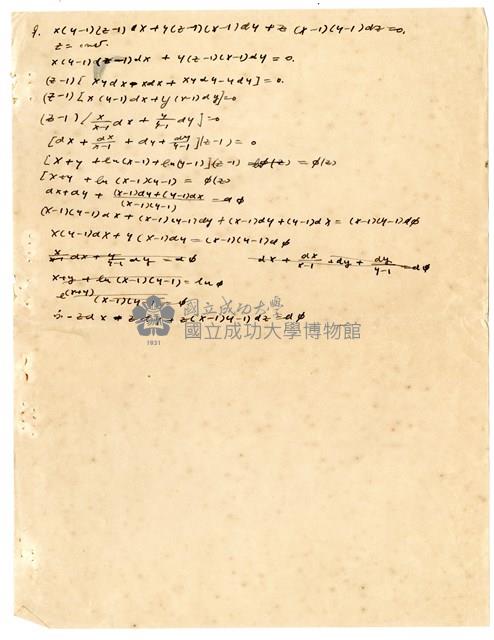 9. x(y-1)(z-1)dx+y(z-1)(x-1)dy+z(x-1)(y-1)dz=0,
z = const.
x(y-1)(z-1)dx + y(z-1)(x-1)dy=0.
(z-1)[xydx-xdx+xydy-ydy]=0.
(z-1)[x(y-1)dx+y(x-1)dy]=0
(z-1)[x/(x-1) dx + y/(y-1) dy]=0
[dx + dx/(x-1) + dy + dy/(y-1)](z-1)=0
[x+y+ln(x-1)+ln(y-1)](z-1) = φ(z)
[x+y+ln(x-1)(y-1) = φ(z)
dx+dy+ ((x-1)dy+(y-1)dx)/((x-1)(y-1)) = dφ
(x-1)(y-1)dx+(x-1)(y-1)dy+(x-1)dy+(y-1)dx=(x-1)(y-1)dφ
x(y-1)dx+y(x-1)dy=(x-1)(y-1)dφ
x/(x-1) dx + y/(y-1) dy = dφ dx + dx/(x-1) + dy + dy/(y-1) = dφ
x+y+ln(x-1)(y-1)=lnφ
e(x+y) (x-1)(y φ
-zdx z +z(x-1)(y-1)dz=dφ
國立成功大學
國立成功大學博物館
1931